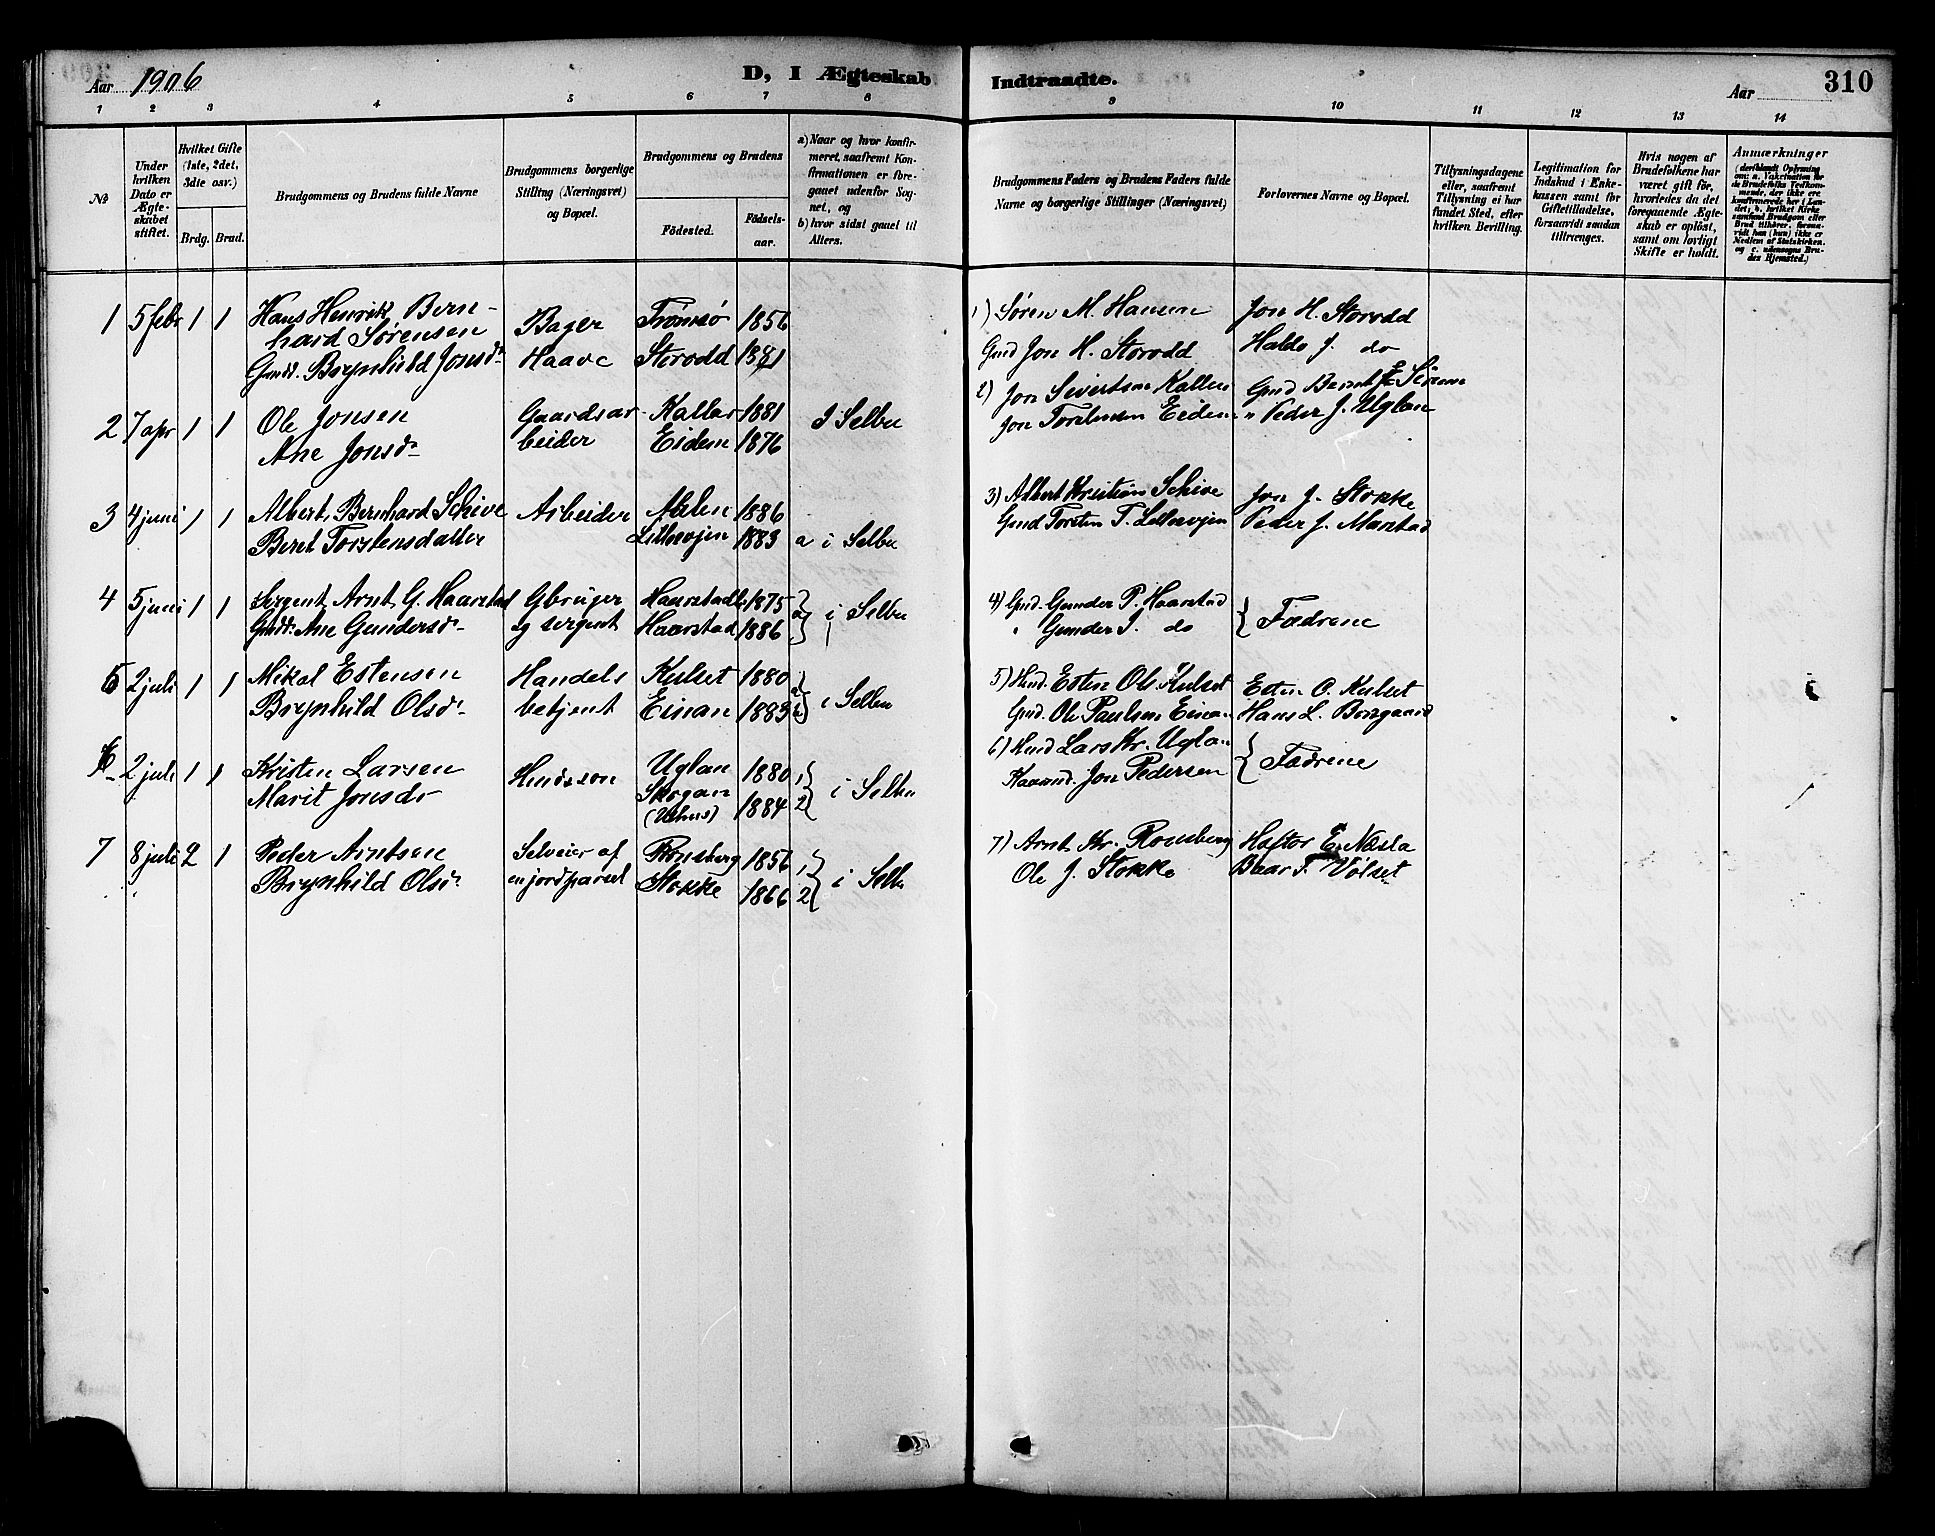 Aar 1906
D, I Ægteskab Indtraadte.
310
Aar
1 2 3 4 5 6 7 8 9 10 11 12 13 14
No
Under hvilken Dato er Ægteskabet stiftet.
Hvilket Gifte (1ste, 2det, 3die osv.)
Brdg. Brud.
Brudgommens og Brudens fulde Navne
Brudgommens borgerlige Stilling (Næringsvei) og Bopæl.
Brudgommens og Brudens
Födested.
Födselsaar.
a) Naar og hvor konfirmeret, saafremt Konfirmationen er foregaaet udenfor Sognet, og
b) hvor sidst gaaet til Alters.
Brudgommens Faders og Brudens Faders fulde Navne og borgerlige Stillinger (Næringsvei)
Forlovernes Navne og Bopæl.
Tillysningsdagene eller, saafremt Tillysning ei har fundet Sted, efter hvilken Bevilling.
Legitimation for Indskud i Enkekassen samt for Giftetilladelse, forsaavidt saadan tiltrænges.
Hvis nogen af Brudefolkene har været gift för, hvorledes da det foregaaende Ægteskab er oplöst, samt om lovligt Skifte er holdt.
Anmærkninger
1 5 febr 1 1 Hans Henrik Bern- Bager Tromsø 1856 1) Søren M. Hansen Jon H. Storodd
hard Sørensen
Gmdd. Brynhild Jonsdr Haave Storodd 1881 Gmd Jon H. Storodd Haldo J. do
2 7 apr 1 1 Ole Jonsen Gaardsar- Kallar 1881 I Selbu 2) Jon Sivertsen Kallar Gmd Bernt E. Sirum
Ane Jonsdr beider Eidem 1876 Jon Torstensen Eidem " Peder J. Uglan
3 4 juni 1 1 Albert Bernhard Schive Arbeider Aalen 1886 3) Albert Kristian Schive Jon J. Stokke
Beret Torstensdatter Litlevjen 1883 a i Selbu Gmd Torsten T. Litlevjen Peder J. Marstad
4 5 juni 1 1 Sergent Arnt G. Haarstad Gbruger Haarstad 1875 i Selbu 4) Gmd. Gunder P. Haarstad Fædrene
Gmdd. Ane Gundersdr og sergent Haarstad 1886 " Gunder J. do
5 2 juli 1 1 Mikal Estensen Handels Kulset 1880 i Selbu 5) Hmd. Esten Ols. Kulset Esten O. Kulset
Brynhild Olsdr betjent Einan 1883 Gmd. Ole Paulsen Einan Hans L. Borgaard
6 2 juli 1 1 Kristen Larsen Hmdsson Uglan 1880 1, i Selbu 6) Hmd Lars Kr. Uglan Fædrene
Marit Jonsdr Skogan 1884 2 Kaarmd. Jon Pedersen
7 8 juli 2 1 Peder Arntsen Selveier af Ronsberg 1856 1, i Selbu 7) Arnt Kr. Ronsberg Haftor E. Næsta
Brynhild Olsdr en jordparsel Stokke 1866 2 Ole J. Stokke Baar T. Vølset